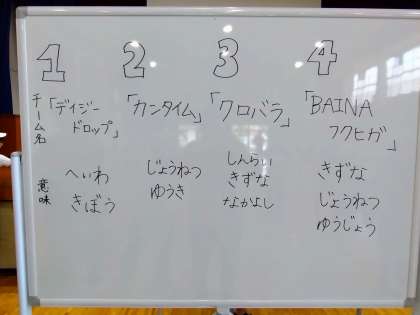 1 2 3 4
チーム名
「デイジー
ドロップ」
「カンタイム」
「クロバラ」
「BAINA
フクヒガ」
意味
へいわ
きぼう
じょうねつ
ゆうき
しんらい
きずな
なかよし
きずな
じょうねつ
ゆうじょう